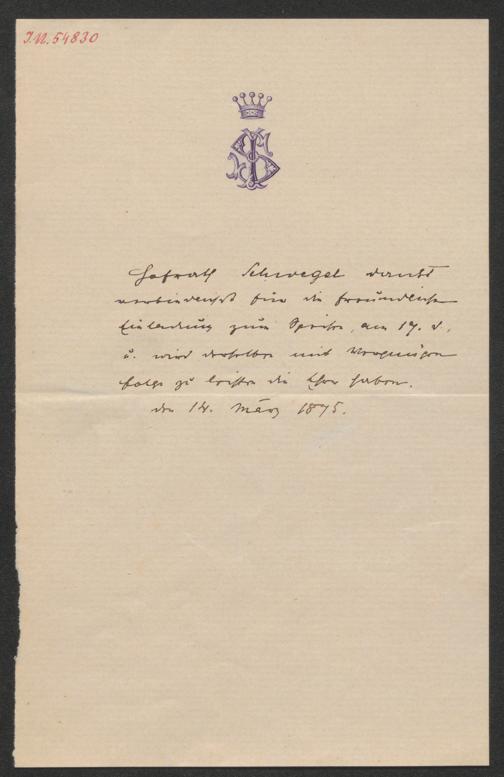 I.N. 54830
Hofrath Schwegel dankt
verbindlichst für die freundliche
Einladung zum Speisen, am 17. d.,
u. wird derselben mit Vergnügen
folge zu leisten die Ehre haben.
den 14. März 1875.